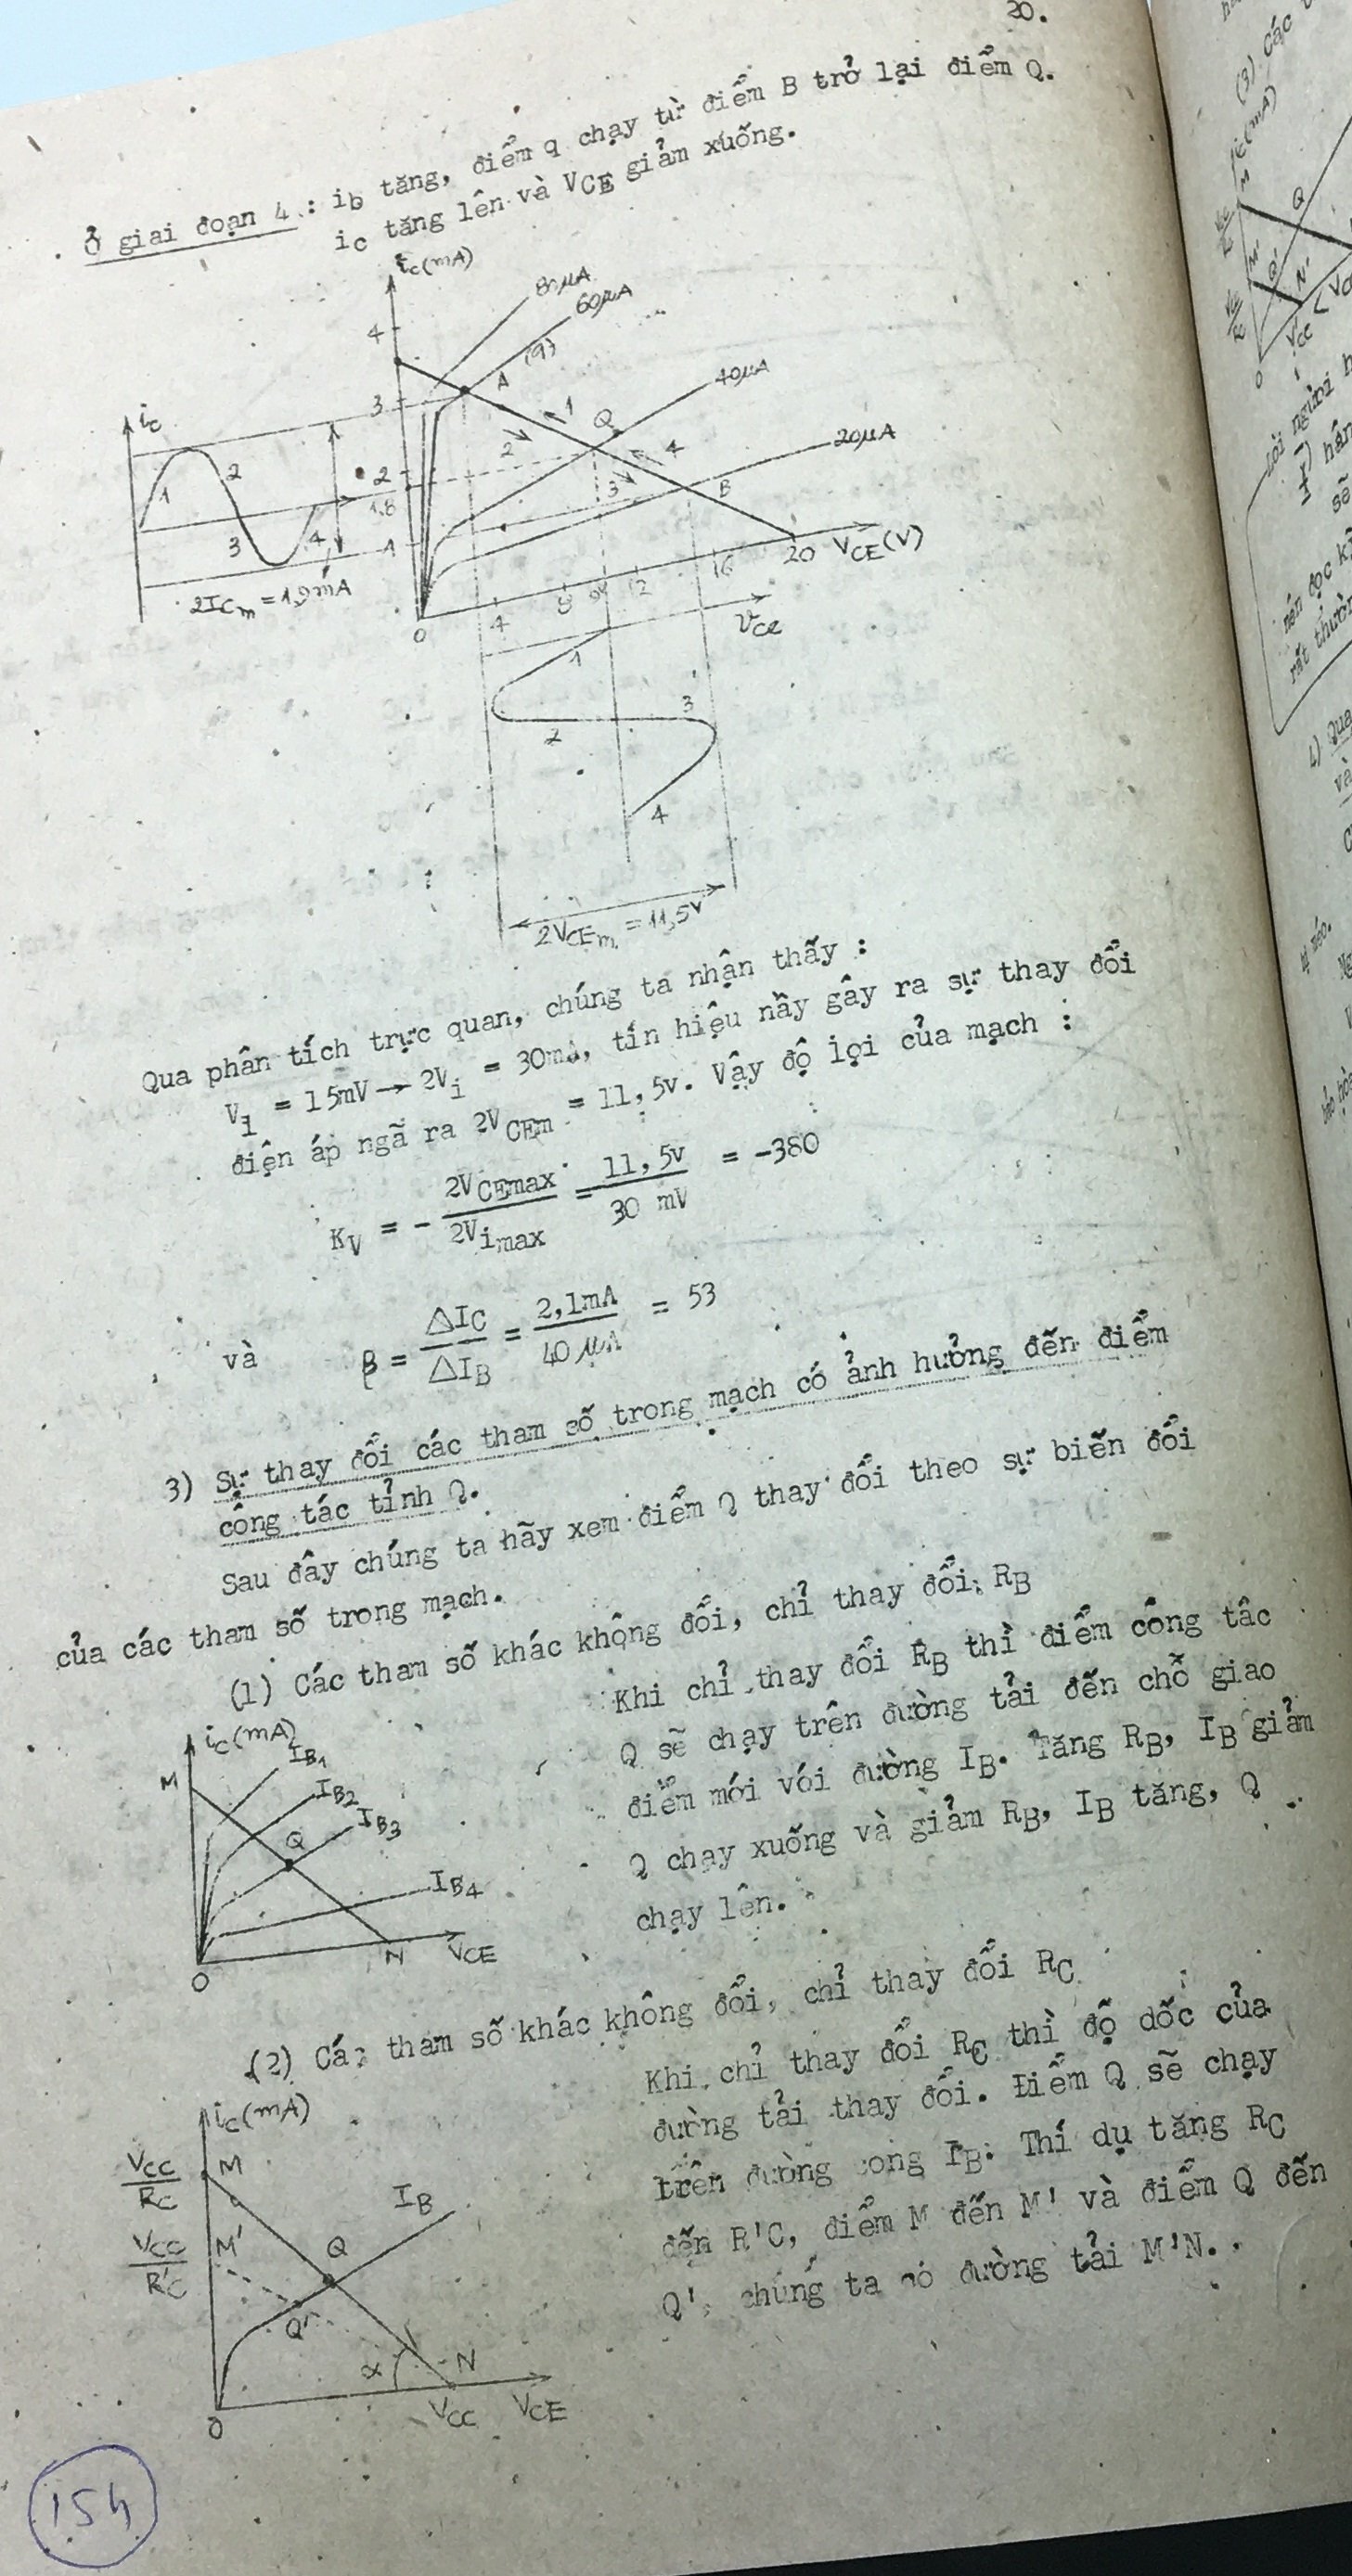 20.
Ở giai đoạn 4 : ib tăng, điểm q chạy từ điểm B trở lại điểm Q.
ic tăng lên và VCE giảm xuống.
ic(mA)
80μA
60μA
4
A (q)
40μA
3
ic
Q
1
20μA
2
4
1
2
2
1.8
3
B
3
4
1
20 VCE(V)
2ICm = 1,9mA
0
4
8
12
16
vce
1
3
2
4
2VCEm = 11,5v
Qua phân tích trực quan, chúng ta nhận thấy :
Vi = 15mV → 2Vi = 30mA, tín hiệu nầy gây ra sự thay đổi
điện áp ngã ra 2VCEm = 11,5v. Vậy độ lợi của mạch :
KV = - 2VCEmax / 2Vimax = 11,5v / 30 mV = -380
và β = ΔIC / ΔIB = 2,1mA / 40 μA = 53
3) Sự thay đổi các tham số trong mạch có ảnh hưởng đến điểm
công tác tỉnh Q.
Sau đây chúng ta hãy xem điểm Q thay đổi theo sự biến đổi
của các tham số trong mạch.
(1) Các tham số khác không đổi, chỉ thay đổi RB
Khi chỉ thay đổi RB thì điểm công tâc
Q sẽ chạy trên đường tải đến chỗ giao
điểm mới với đường IB. Tăng RB, IB giảm
Q chạy xuống và giảm RB, IB tăng, Q
chạy lên.
ic(mA)
M
IB1
IB2
IB3
Q
IB4
0
N
VCE
(2) Các tham số khác không đổi, chỉ thay đổi RC
Khi chỉ thay đổi RC thì độ dốc của
đường tải thay đổi. Điểm Q sẽ chạy
trên đường cong IB. Thí dụ tăng RC
đến R'C, điểm M đến M' và điểm Q đến
Q', chúng ta có đường tải M'N.
ic(mA)
VCC / RC
M
IB
VCC / R'C
M'
Q
Q'
α
N
0
VCC
VCE
154
(3) Các
ic(mA)
M
Q
M'
Q'
N'
0